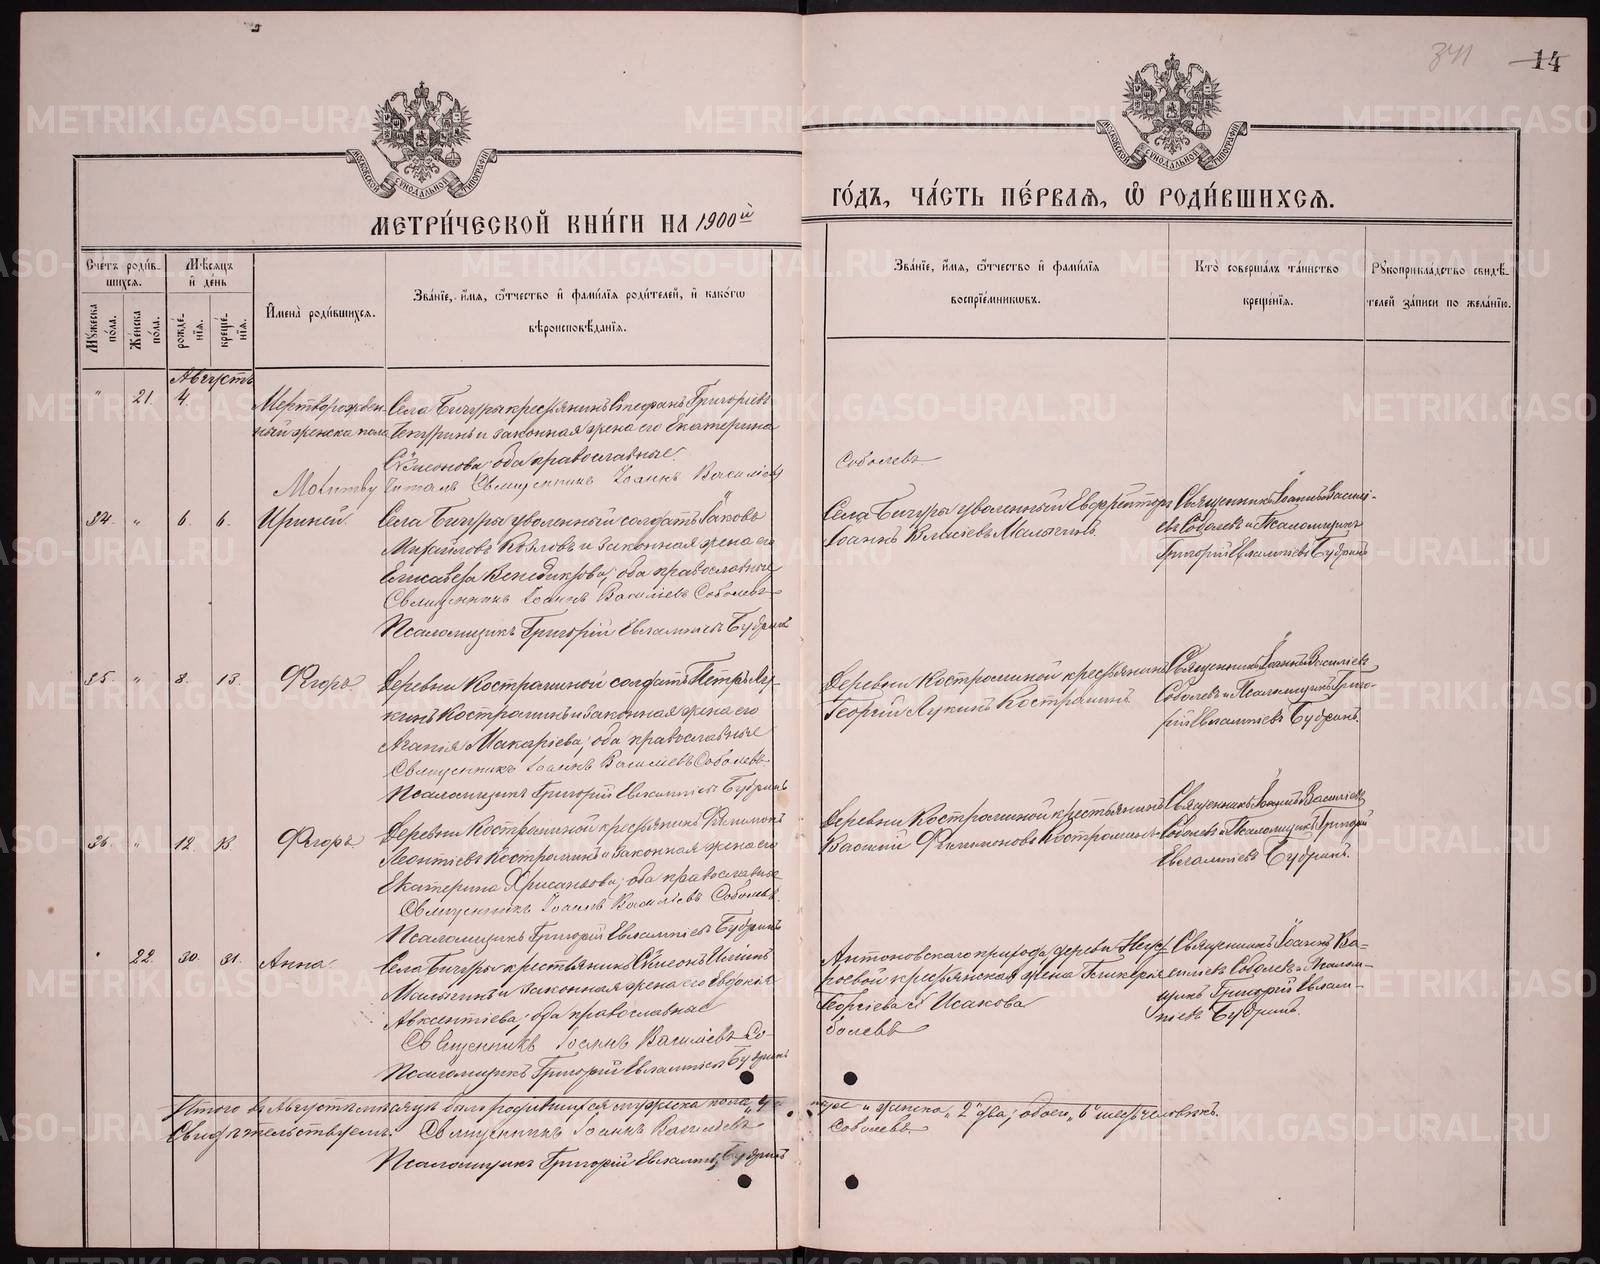 341 14
МОСКОВСКОЙ СѴНОДАЛЬНОЙ ТИПОГРАФІИ
МОСКОВСКОЙ СѴНОДАЛЬНОЙ ТИПОГРАФІИ
МЕТРИ́ЧЕСКОЙ КНИ́ГИ НА 1900й ГО́ДЪ, ЧА́СТЬ ПЕ́РВАѦ, Ѡ҆ РОДИ́ВШИХСѦ.
Сче́тъ роди́в-
шихсѧ.
Мꙋ́жеска по́ла.
Же́нска по́ла.
Мѣ́сѧцъ и҆ де́нь
рожде́-
нїѧ.
креще́-
нїѧ.
И҆мена̀ роди́вшихсѧ.
Зва́нїе, и҆́мѧ, ѻ҆́тчество и҆ фами́лїѧ роди́телей, и҆ како́гѡ
вѣроисповѣ́данїѧ.
Зва́нїе, и҆́мѧ, ѻ҆́тчество и҆ фами́лїѧ
воспрїе́мникѡвъ.
Кто̀ соверша́лъ та́инство
креще́нїѧ.
Рꙋкоприкла́дство свидѣ́-
телей за́писи по жела́нїю.
Августъ
" 21. 4. Мертворожден- Села Бичуры крестьянинъ Стефанъ Григоріевъ
ный женска пола и законная жена его Екатерина
Сѷмеонова; оба православные.
Молитву читалъ Священникъ Іоаннъ Василіевъ Соболевъ
34. " 6. 6. Ириней. Села Бичуры уволенный солдатъ Іаковъ
Михайловъ Козловъ и законная жена его
Елисавета Венедиктова; оба православные
Священникъ Іоаннъ Василіевъ Соболевъ
Псаломщикъ Григорій Евлампіевъ Бубринъ
Села Бичуры уволенный Ефрейторъ
Іоаннъ Малыгинъ.
Священникъ Іоаннъ Василі-
евъ Соболевъ и Псаломщикъ
Григорій Евлампіевъ Бубринъ
35. " 8. 13. Ѳгоръ. Деревни Костроминой солдатъ Петръ Лу-
кинъ Костроминъ и законная жена его
Агапія Макаріева; оба православные
Священникъ Іоаннъ Василіевъ Соболевъ
Псаломщикъ Григорій Евлампіевъ Бубринъ
Деревни Костроминой крестьянинъ
Георгій Лукинъ Костроминъ.
Священникъ Іоаннъ Василіевъ
Соболевъ и Псаломщикъ Григо-
рій Евлампіевъ Бубринъ.
36. " 12. 13 Ѳгоръ Деревни Костроминой крестьянинъ Филимонъ
Леонтіевъ Костроминъ и законная жена его
Екатерина Хрисанѳова; оба православные
Священникъ Іоаннъ Василіевъ Соболевъ.
Псаломщикъ Григорій Евлампіевъ Бубринъ
Деревни Костроминой крестьянинъ
Василій Филимоновъ Костроминъ
Священникъ Іоаннъ Василіевъ
Соболевъ и Псаломщикъ Григорій
Евлампіевъ Бубринъ.
" 22. 30. 31. Анна. Села Бичуры крестьянинъ Сѷмеонъ Ильинъ
Малыгинъ и законная жена его Евдокія
Авксентіева; оба православные
Священникъ Іоаннъ Василіевъ Со-
болевъ
Псаломщикъ Григорій Евлампіевъ Бубринъ
Антоновскаго прихода деревни
крестьянская жена Гликерія
Георгіева Исакова
Священникъ Іоаннъ Ва-
силіевъ Соболевъ и Псалом-
щикъ Григорій Евлам-
піевъ Бубринъ.
Итого въ Августѣ мѣсяцѣ было родившихся мужска пола "4" женска "2" два; обоего "6" шесть человѣкъ.
Свидѣтельствуемъ. Священникъ Іоаннъ Василіевъ Соболевъ
Псаломщикъ Григорій Евлампіевъ Бубринъ
METRIKI.GASO-URAL.RU